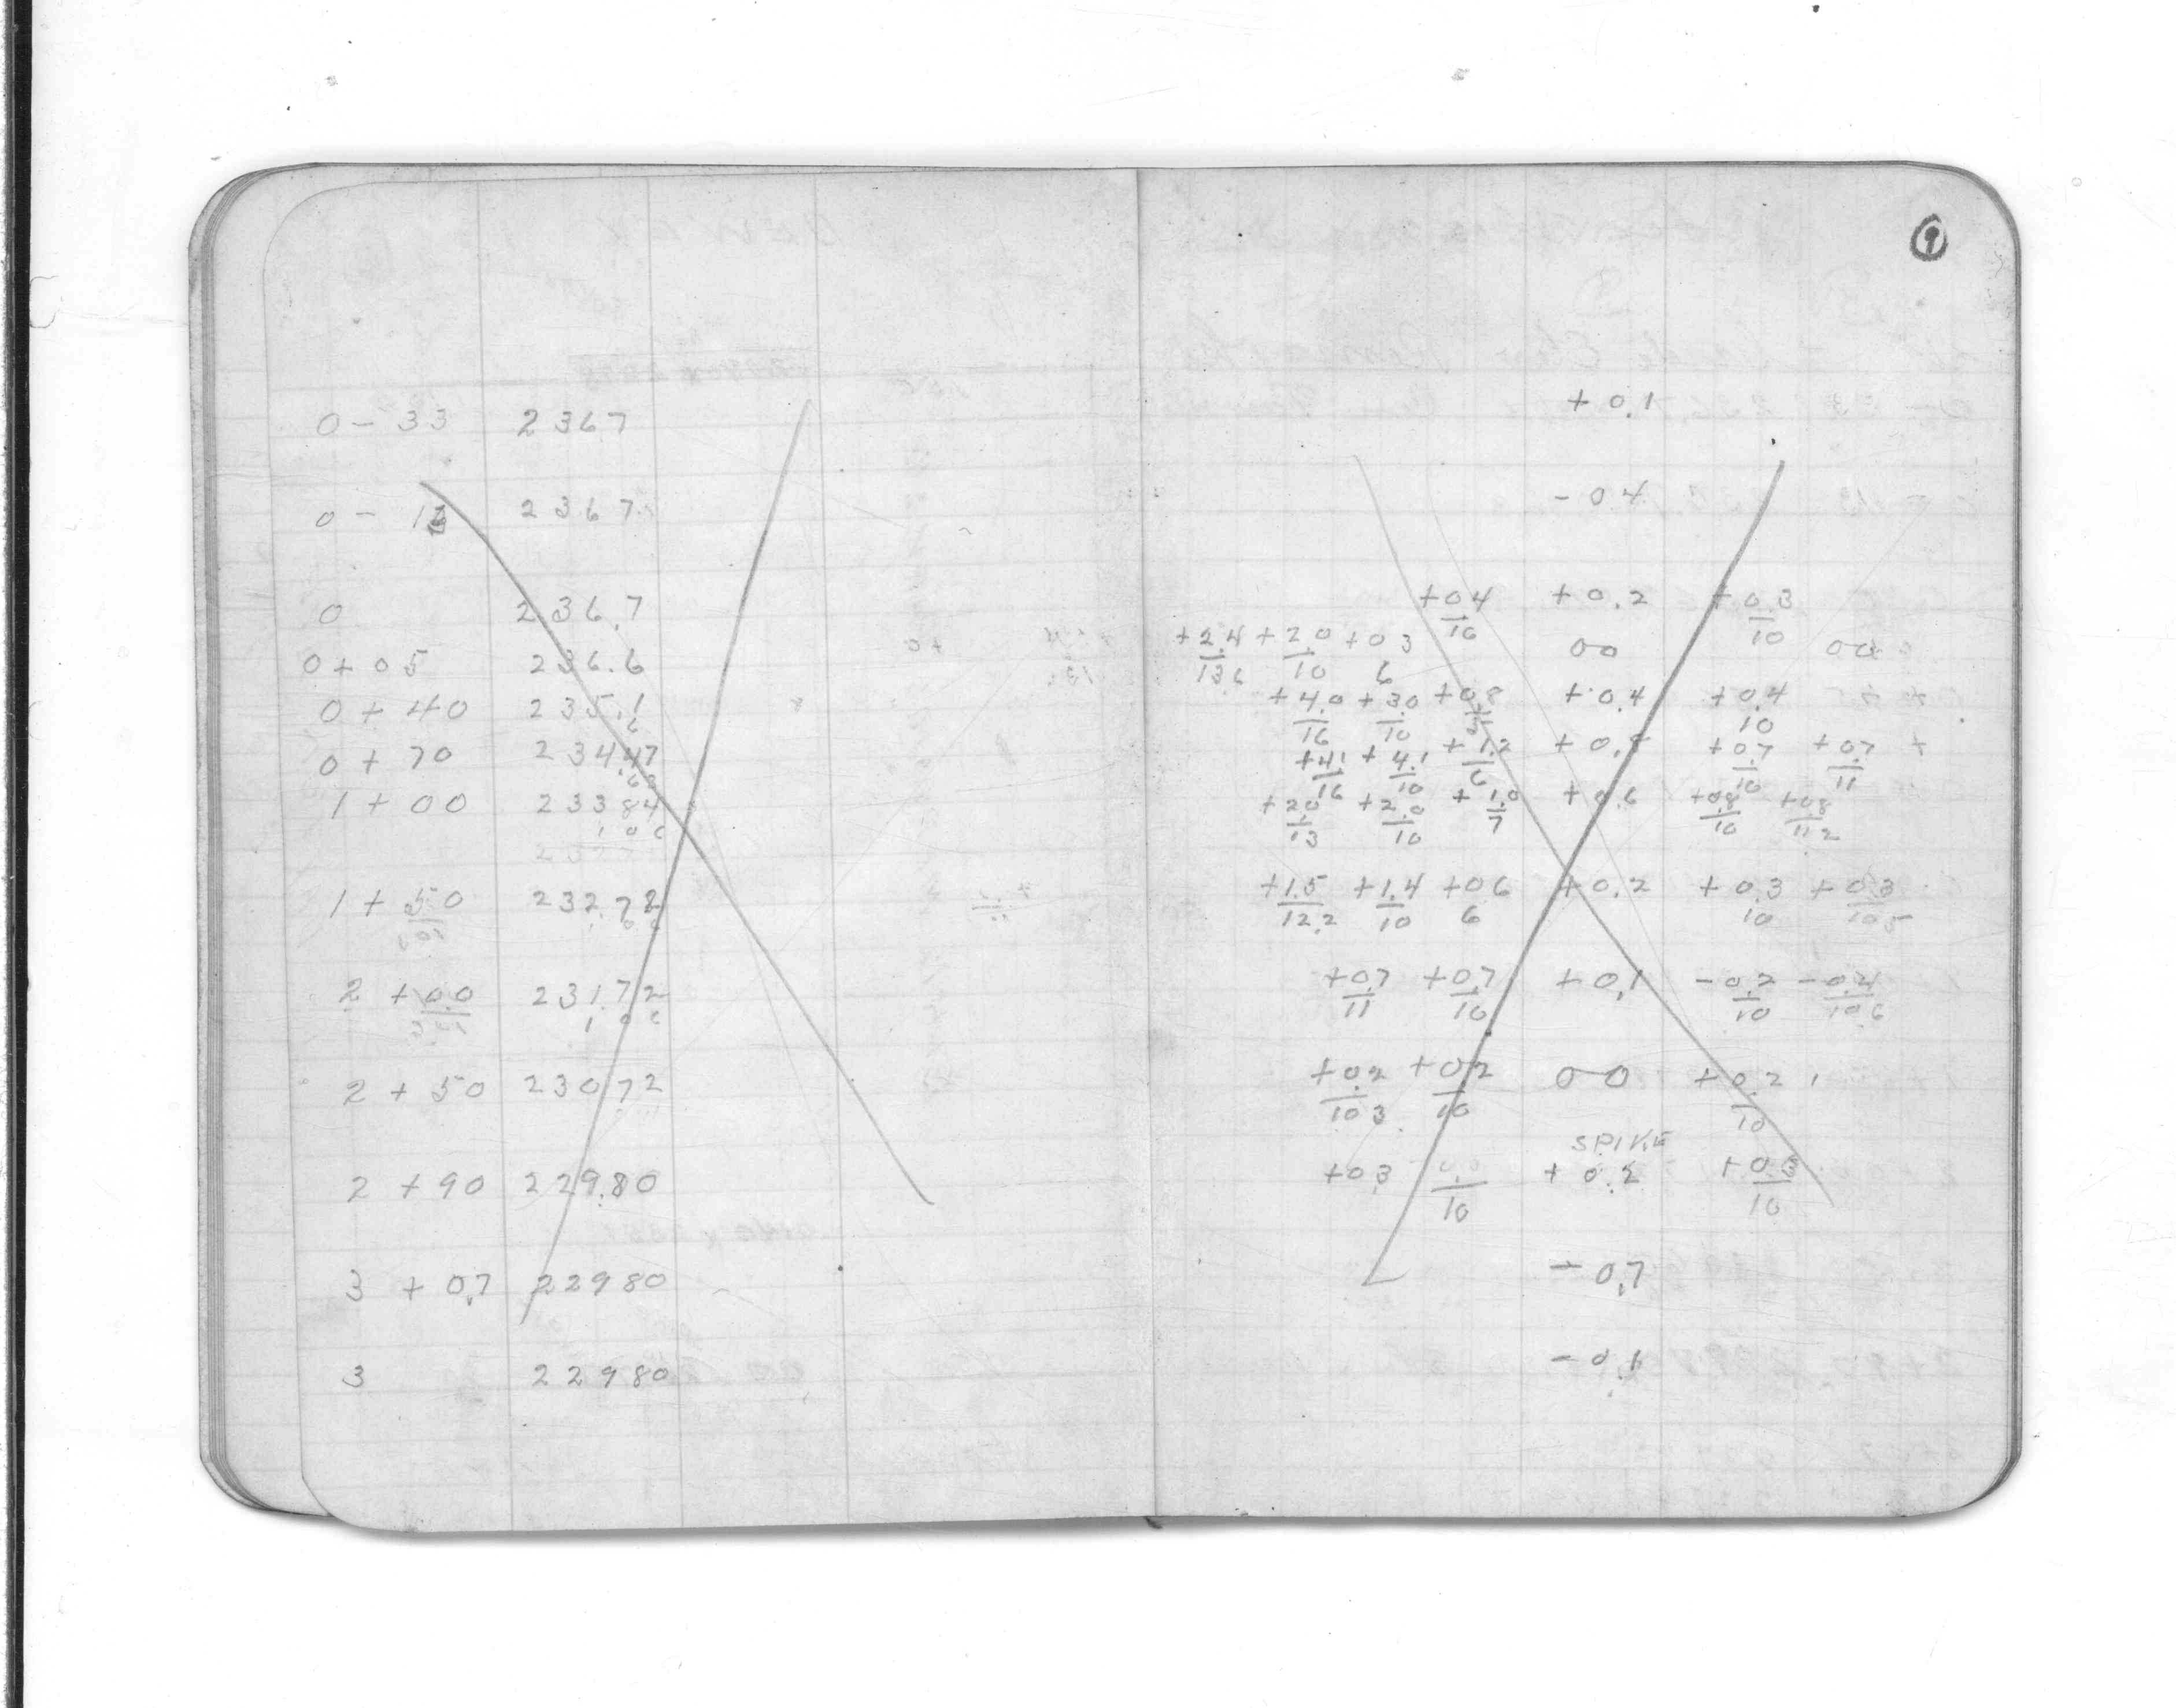 0 - 33 2367
0 - 2367
0 236.7
0 + 05 236.6
0 + 40 235.1
6
0 + 70 234.47
1 + 00 23384
1 0 6
1 + 50 232.72
2 + 00 231.72
1 0 6
2 + 50 23072
2 + 90 229.80
3 + 0.7 22980
3 22980
9
+ 0.1
- 0.4
+0.4/10 + 0.2 +0.3/10
+2.4/13.6 +2.0/10 +0.3/6 00 00
+4.0/16 +3.0/10 +0.8 +0.4 +0.4/10
+4.1/16 +4.1/10 +1.2/6 +0.7/10 +0.7/11
+2.0/13 +2.0/10 +1.0/7 +0.6 +0.8/10 +0.8/11.2
+1.5/12.2 +1.4/10 +0.6/6 +0.2 +0.3/10 +0.3/10.5
+0.7/11 +0.7/10 +0.1 -0.2/10 -0.4/10.6
+0.2/10.3 +0.2/10 00 +0.2/10
SPIKE
+0.3 0.0/10 +0.2 +0.3/10
- 0.7
- 0.1